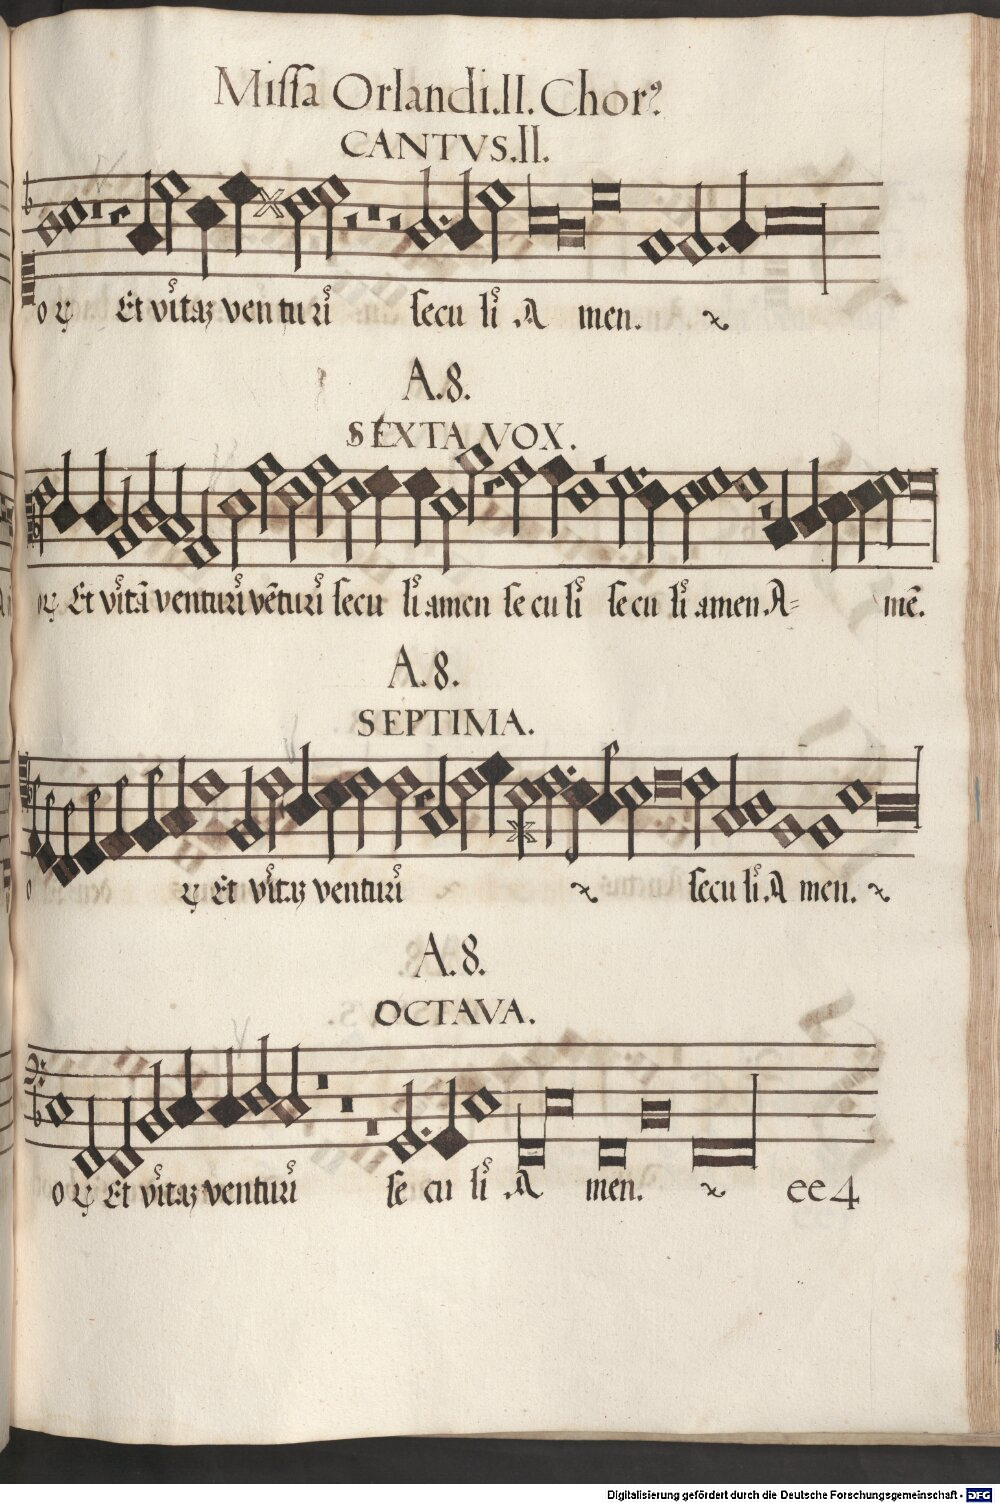 Missa Orlandi.II. Chorꝰ.
CANTVS.II.
o ꝝ Et vitaꝫ venturi secu li .A men. ⁊
A.8.
SEXTA VOX.
oꝝ Et vitā venturi vēturi secu li .amen se cu li se cu li .amen .A= mē.
A.8.
SEPTIMA.
o ꝝ Et vitaꝫ venturi ⁊ secu li .A men. ⁊
A.8.
OCTAVA.
o ꝝ Et vitaꝫ venturi se cu li .A men. ⁊ ee4
Digitalisierung gefördert durch die Deutsche Forschungsgemeinschaft - DFG